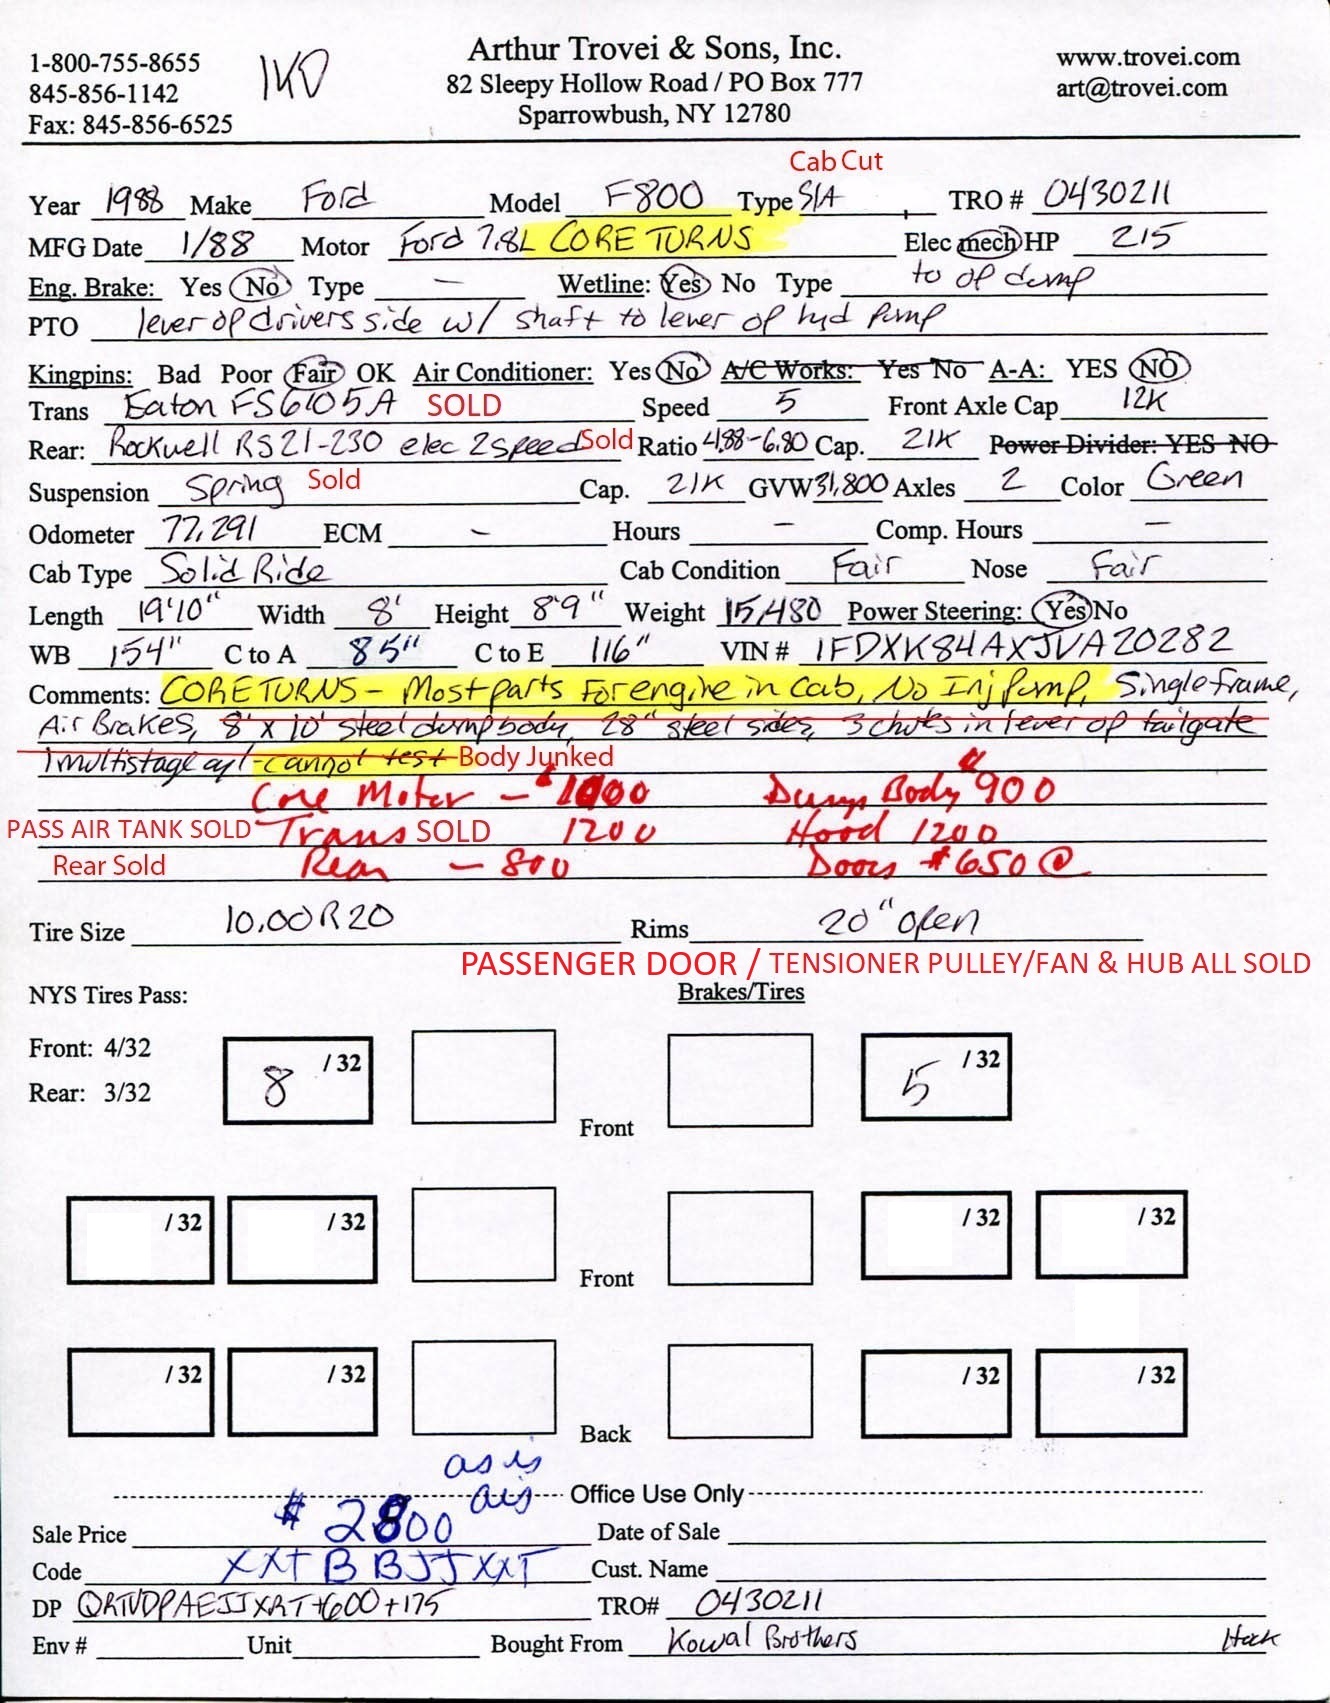 1-800-755-8655
845-856-1142
Fax: 845-856-6525
Arthur Trovei & Sons, Inc.
82 Sleepy Hollow Road / PO Box 777
Sparrowbush, NY 12780
www.trovei.com
art@trovei.com
Cab Cut
Year 1988 Make Ford Model F800 Type S/A TRO # 0430211
MFG Date 1/88 Motor Ford 7.8L CORE TURNS Elec mech HP 215
Eng. Brake: Yes No Type — Wetline: Yes No Type to op dump
PTO lever op drivers side w/ shaft to lever op hyd pump
Kingpins: Bad Poor Fair OK Air Conditioner: Yes No A/C Works: Yes No A-A: YES NO
Trans Eaton FS6105A SOLD Speed 5 Front Axle Cap 12K
Rear: Rockwell RS21-230 elec 2speed Sold Ratio 4.88-6.80 Cap. 21K Power Divider: YES NO
Suspension Spring Sold Cap. 21K GVW 31,800 Axles 2 Color Green
Odometer 77,291 ECM — Hours — Comp. Hours —
Cab Type Solid Ride Cab Condition Fair Nose Fair
Length 19'10" Width 8' Height 8'9" Weight 15,480 Power Steering: Yes No
WB 154" C to A 85" C to E 116" VIN # 1FDXK84AXJVA20282
Comments: CORE TURNS - Most parts For engine in cab, No Inj Pump, Single frame,
Air Brakes, 8' x 10' steel dump body, 28" steel sides, 3 chutes in lever op tailgate
1 multistage cyl - cannot test Body Junked
Core Motor - $1000 Dump Body $900
PASS AIR TANK SOLD Trans SOLD 1200 Hood 1200
Rear Sold Rear - 800 Doors $650 @
Tire Size 10.00R20 Rims 20" open
PASSENGER DOOR / TENSIONER PULLEY/FAN & HUB ALL SOLD
NYS Tires Pass: Brakes/Tires
Front: 4/32
Rear: 3/32
8 /32 5 /32
Front
/32 /32 /32 /32
Front
/32 /32 /32 /32
Back
as is
ais
Office Use Only
Sale Price $2800 Date of Sale
Code XXTBBJJXXT Cust. Name
DP QRTVDPAEJJXRT+600+175 TRO# 0430211
Env # Unit Bought From Kowal Brothers